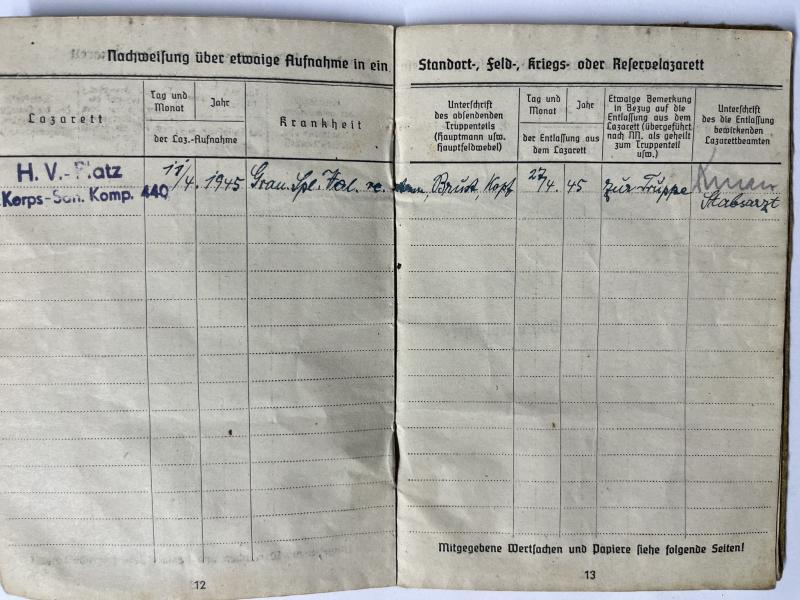 Nachweisung über etwaige Aufnahme in ein
Lazarett
Tag und
Monat
Jahr
der Laz.-Aufnahme
Krankheit
H. V.-Platz
Korps-San. Komp. 440
11/4. 1945 Gran. Spl. re.
12
Standort-, Feld-, Kriegs- oder Reservelazarett
Unterschrift
des absendenden
Truppenteils
(Hauptmann usw.
Hauptfeldwebel)
Tag und
Monat
Jahr
der Entlassung aus
dem Lazarett
Etwaige Bemerkung
in Bezug auf die
Entlassung aus dem
Lazarett (übergeführt
nach NN. als geheilt
zum Truppenteil
usw.)
Unterschrift
des die Entlassung
bewirkenden
Lazarettbeamten
Brust, Kopf 27/4. 45 zur Truppe
Stabsarzt
Mitgegebene Wertsachen und Papiere siehe folgende Seiten!
13